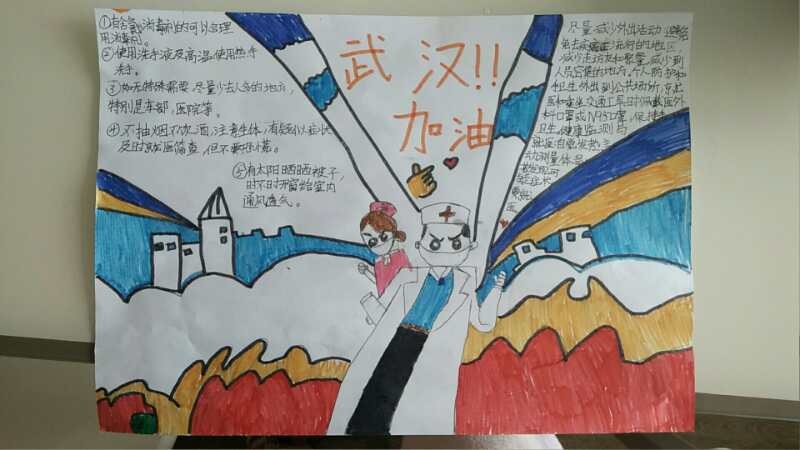 ①有含氯消毒剂的可以合理
用消毒剂。
②使用洗手液及高温使用热手
洗手。
③如无特殊需要,尽量少去人多的地方,
特别是车部,医院等。
④不抽烟不饮酒,注意生体,有疑似症状
及时就医筛查,但不要
⑤有太阳晒晒被子,
时不时开窗给室内
通风透气。
武汉!!
加油
尽量减少外出活动
免去疾病流行的地区
减少走访友和聚餐,减少到
人员密集的地方,个人防护和
卫生外出到公共场所,
医和乘坐交通工具时佩戴医外
科口罩或N95口罩,保持
卫生,健康监测与
就医自觉发热
动测量体
症状
医